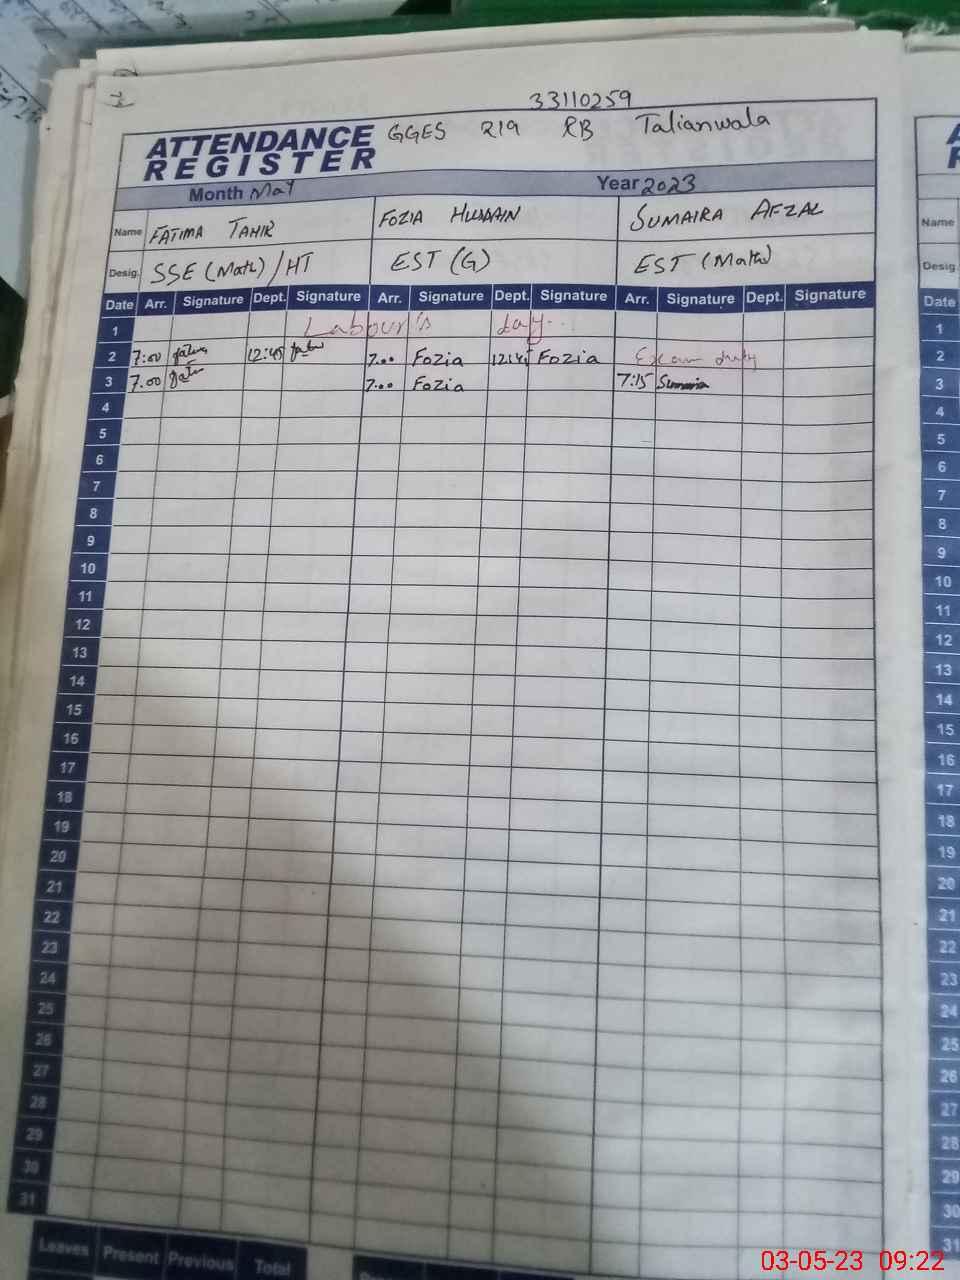 33110259
ATTENDANCE REGISTER
GGES 219 RB Talianwala
Month May Year 2023
Name FATIMA TAHIR FOZIA HUSSAIN SUMAIRA AFZAL
Desig. SSE (Math) / HT EST (G) EST (Math)
Date Arr. Signature Dept. Signature Arr. Signature Dept. Signature Arr. Signature Dept. Signature
1 Labour's day...
2 7:00 fatima 12:45 fatima 7:00 Fozia 12:45 Fozia Exam duty
3 7:00 fatima 7:00 Fozia 7:15 Sumaira
4
5
6
7
8
9
10
11
12
13
14
15
16
17
18
19
20
21
22
23
24
25
26
27
28
29
30
31
Leaves Present Previous Total
Name
Desig.
Date
1
2
3
4
5
6
7
8
9
10
11
12
13
14
15
16
17
18
19
20
21
22
23
24
25
26
27
28
29
30
31
03-05-23 09:22